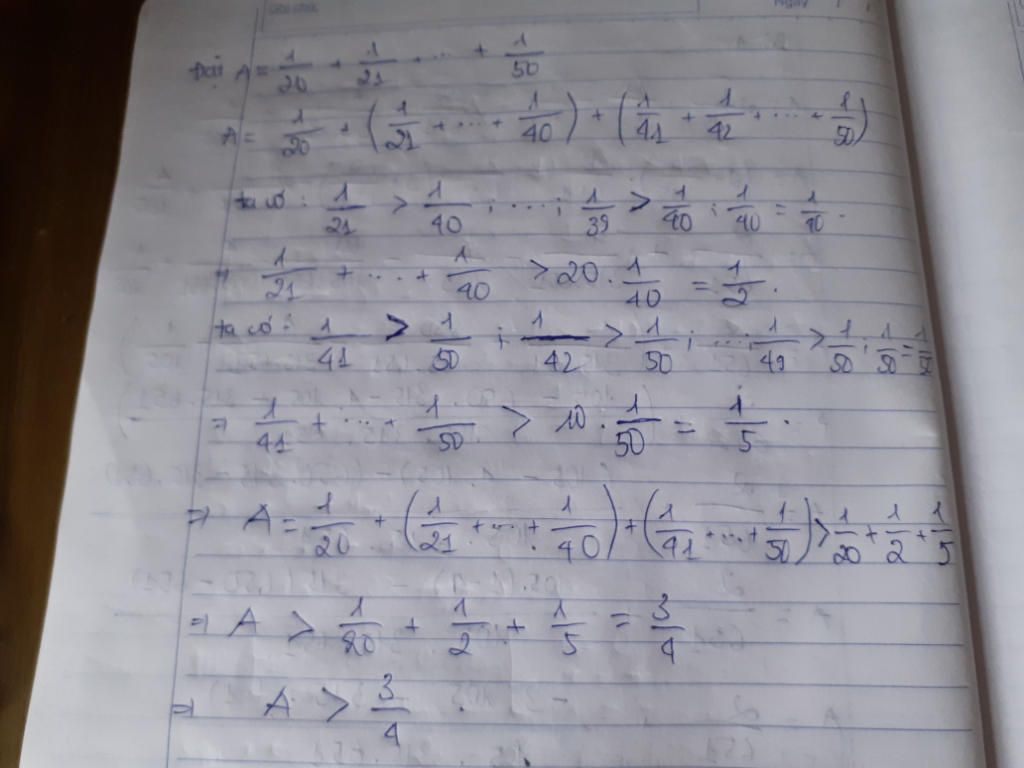 Đặt A = 1/20 + 1/21 + ... + 1/50
A = 1/20 + (1/21 + ... + 1/40) + (1/41 + 1/42 + ... + 1/50)
ta có : 1/21 > 1/40 ; ... ; 1/39 > 1/40 ; 1/40 = 1/40 .
⇒ 1/21 + ... + 1/40 > 20 . 1/40 = 1/2 .
ta có : 1/41 > 1/50 ; 1/42 > 1/50 ; ... ; 1/49 > 1/50 ; 1/50 = 1/50
⇒ 1/41 + ... + 1/50 > 10 . 1/50 = 1/5 .
⇒ A = 1/20 + (1/21 + ... + 1/40) + (1/41 + ... + 1/50) > 1/20 + 1/2 + 1/5
⇒ A > 1/20 + 1/2 + 1/5 = 3/4
⇒ A > 3/4 .